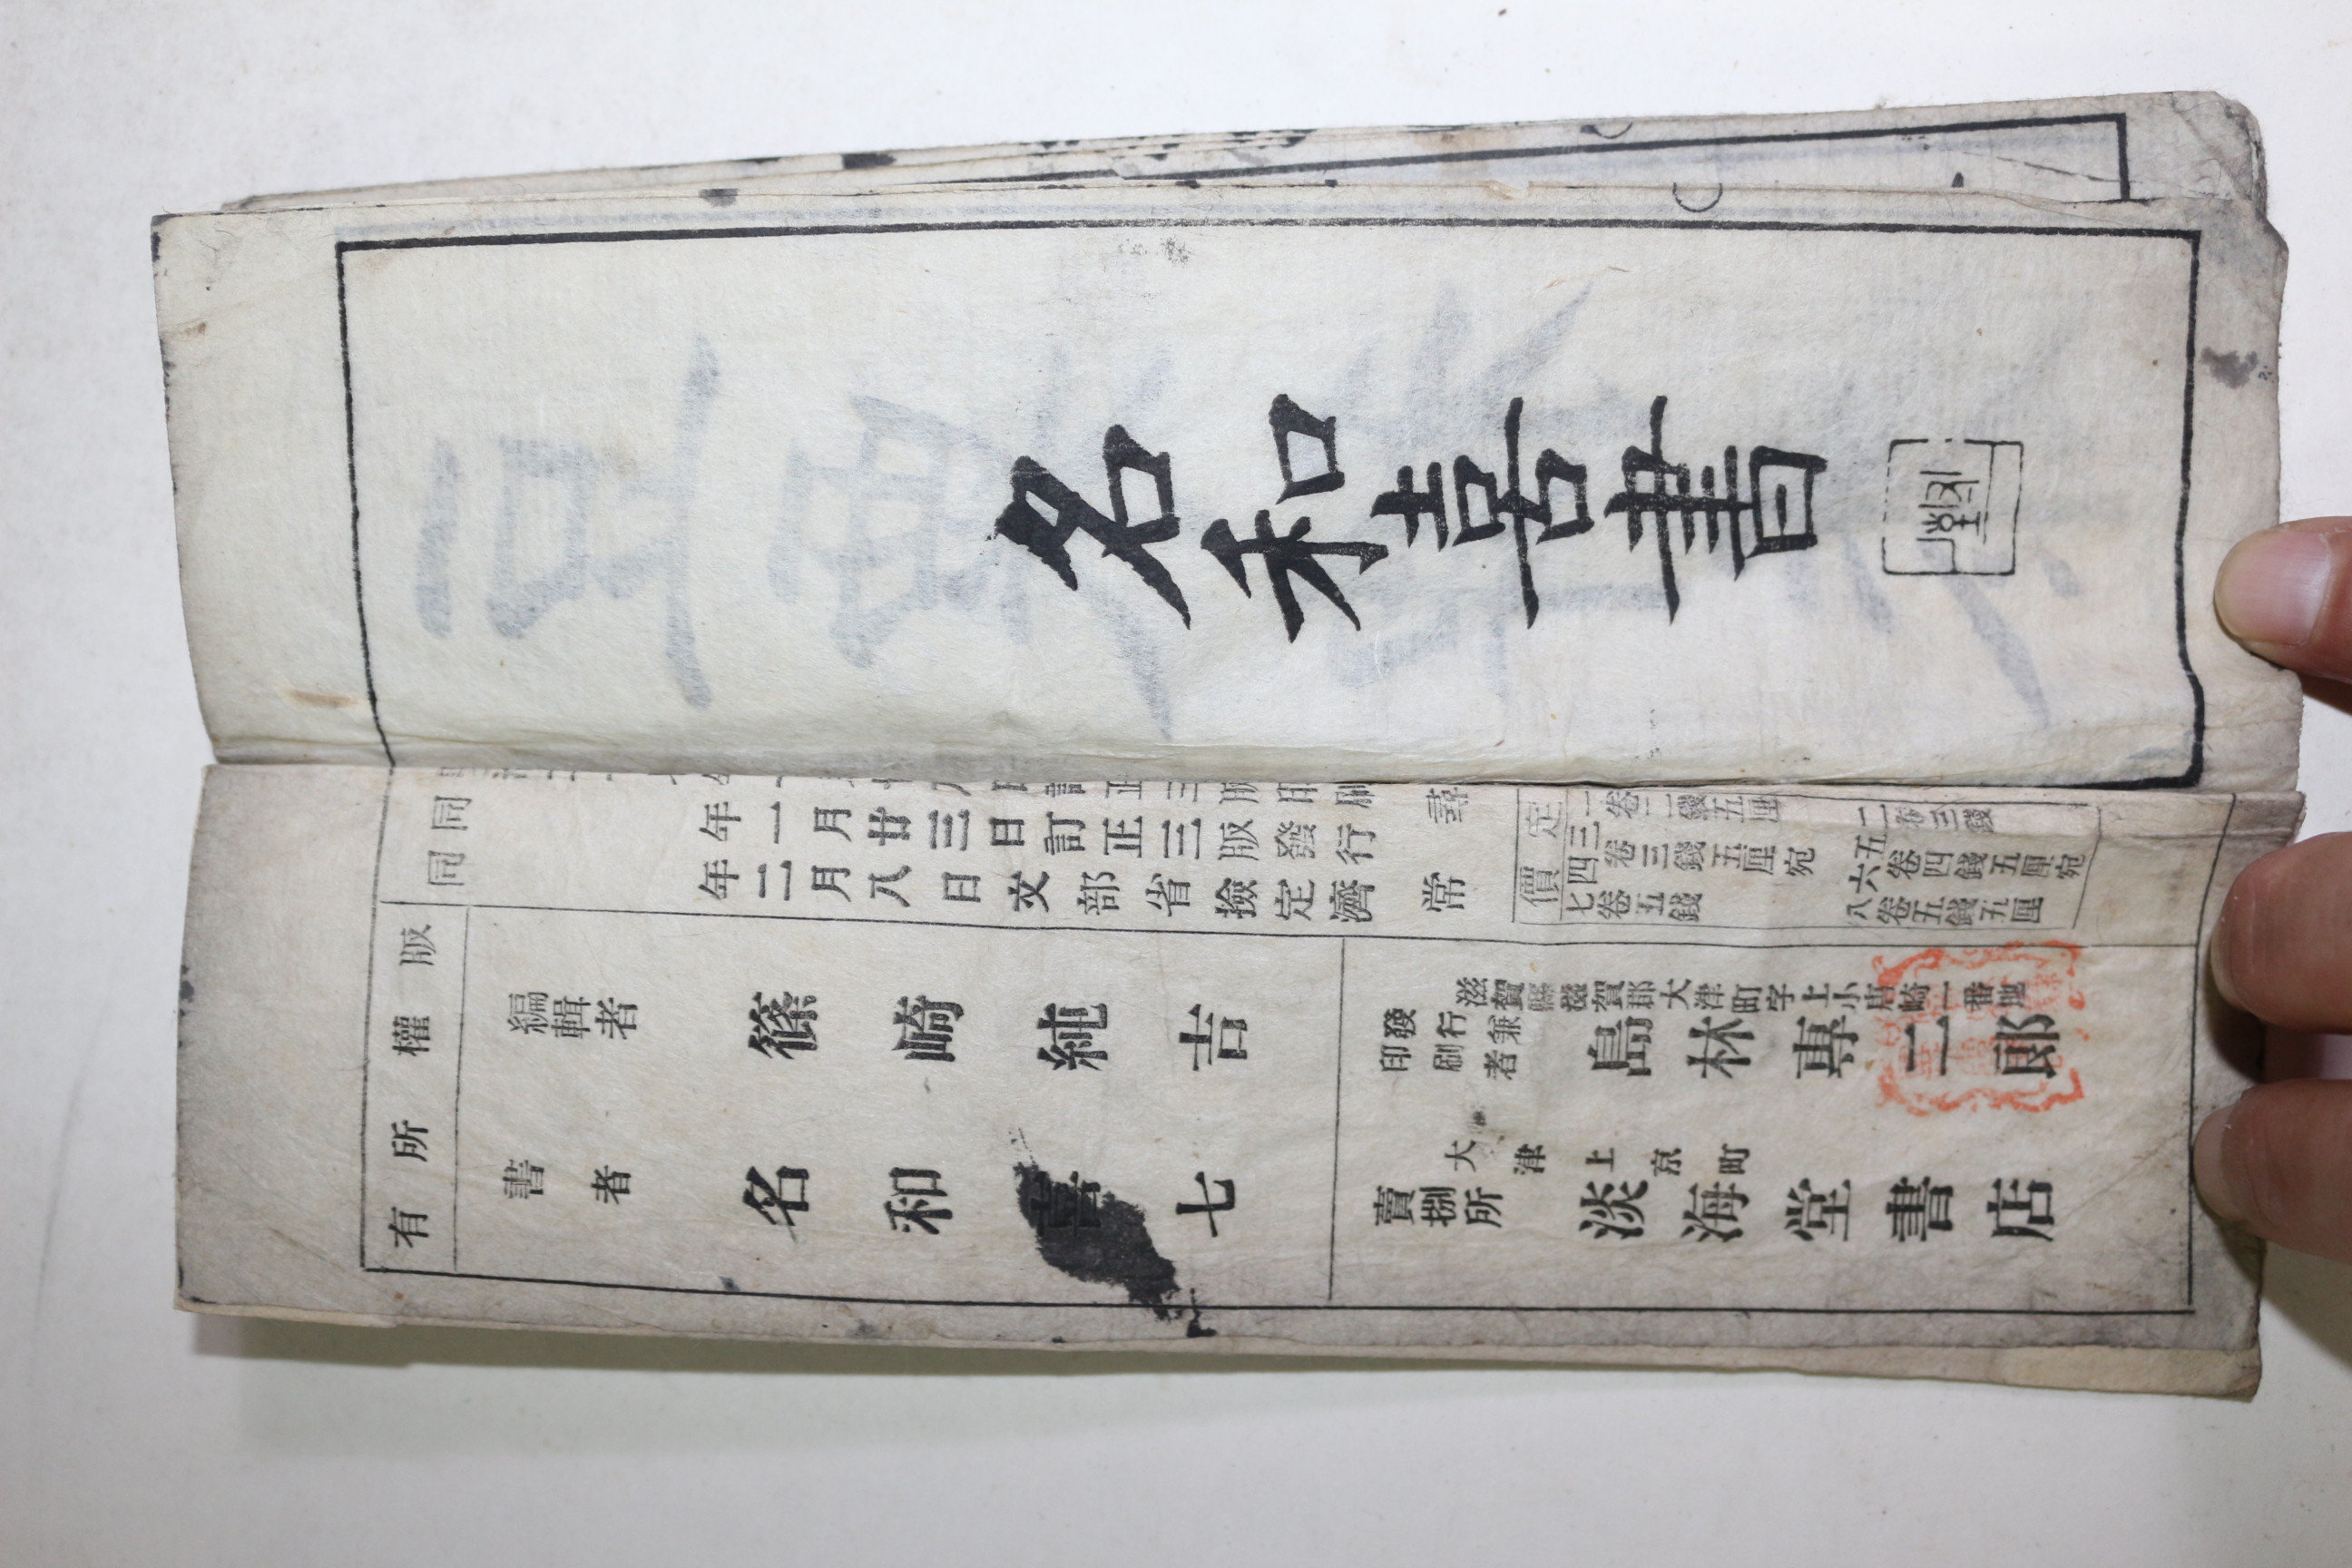 名和喜書
同 年一月廿三日訂正三版發行
同 年二月八日文部省撿定濟
尋常
定價
一卷二錢五厘 二卷三錢
三四卷三錢五厘宛 五六卷四錢五厘宛
七卷五錢 八卷五錢五厘
版權所有
編輯者 篠崎純吉
書者 名和喜七
滋賀縣滋賀郡大津町字上小唐崎一番地
發行兼印刷者 島林專二郎
大津上京町
賣捌所 淡海堂書店